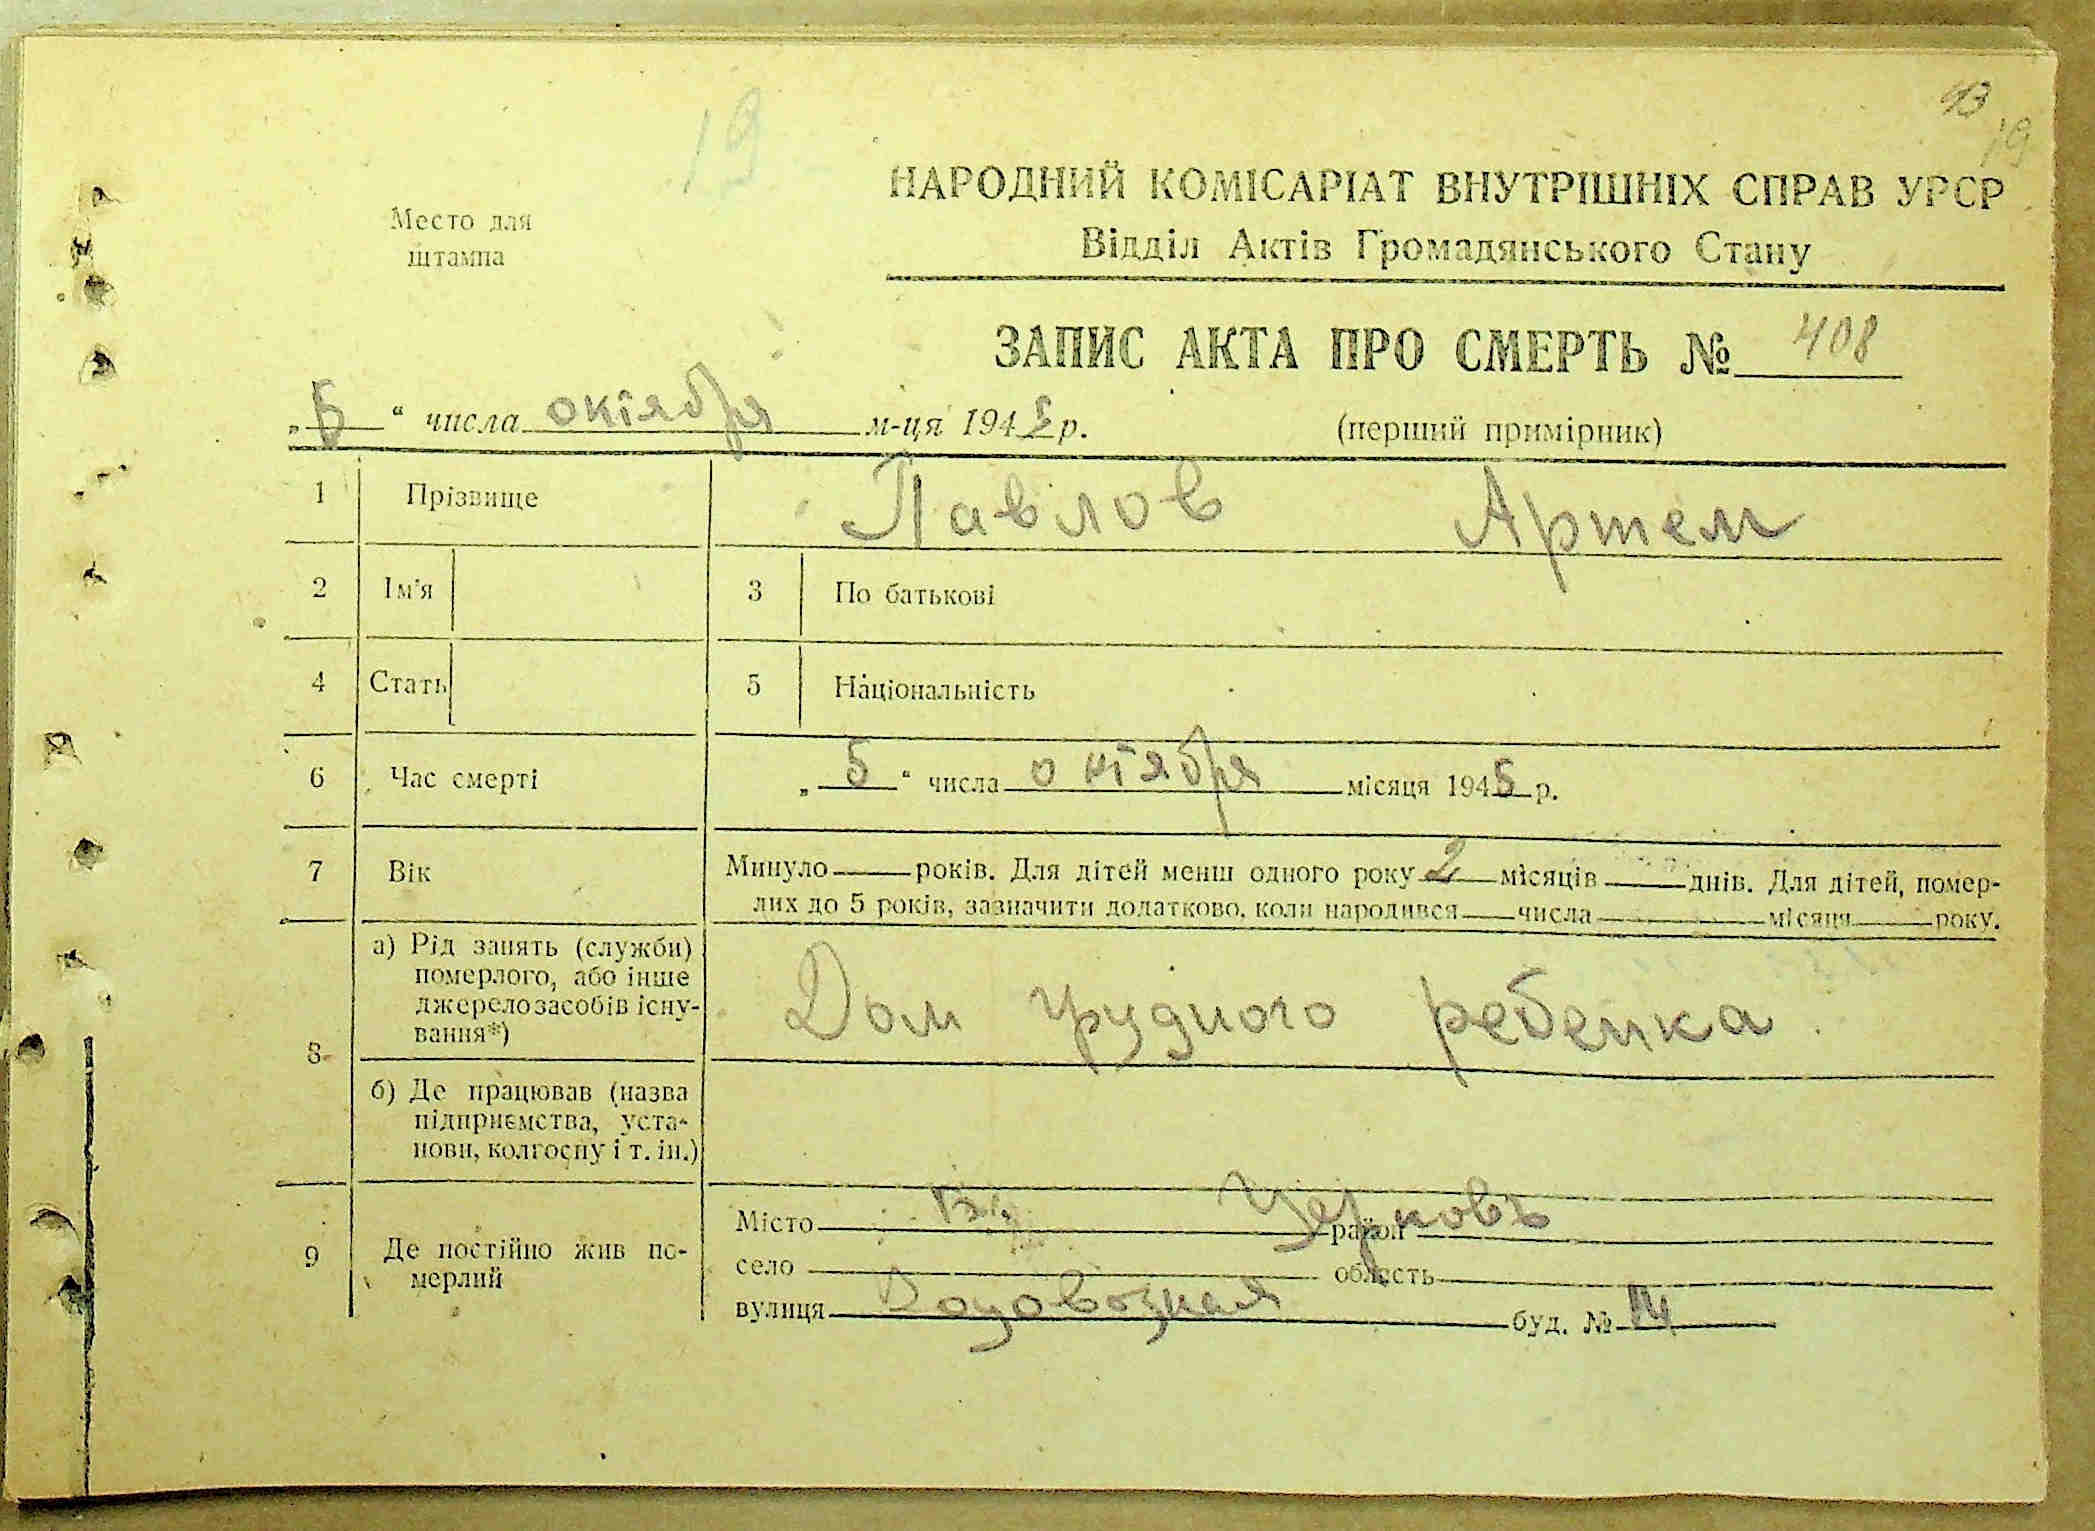 19
19
Место для
штампа
НАРОДНИЙ КОМІСАРІАТ ВНУТРІШНІХ СПРАВ УРСР
Відділ Актів Громадянського Стану
ЗАПИС АКТА ПРО СМЕРТЬ № 408
„5“ числа октября м-ця 1945 р. (перший примірник)
1 Прізвище Павлов Артем
2 Ім'я 3 По батькові
4 Стать 5 Національність
6 Час смерті „5“ числа октября місяця 1945 р.
7 Вік Минуло років. Для дітей менш одного року 2 місяців днів. Для дітей, помер-
лих до 5 років, зазначити додатково, коли народився числа місяця року.
8 а) Рід занять (служби)
померлого, або інше
джерело засобів існу-
вання*) Дом грудного ребенка
б) Де працював (назва
підприємства, уста-
нови, колгоспу і т. ін.)
9 Де постійно жив по-
мерлий
Місто Церковъ район
село область
вулиця буд. № 14